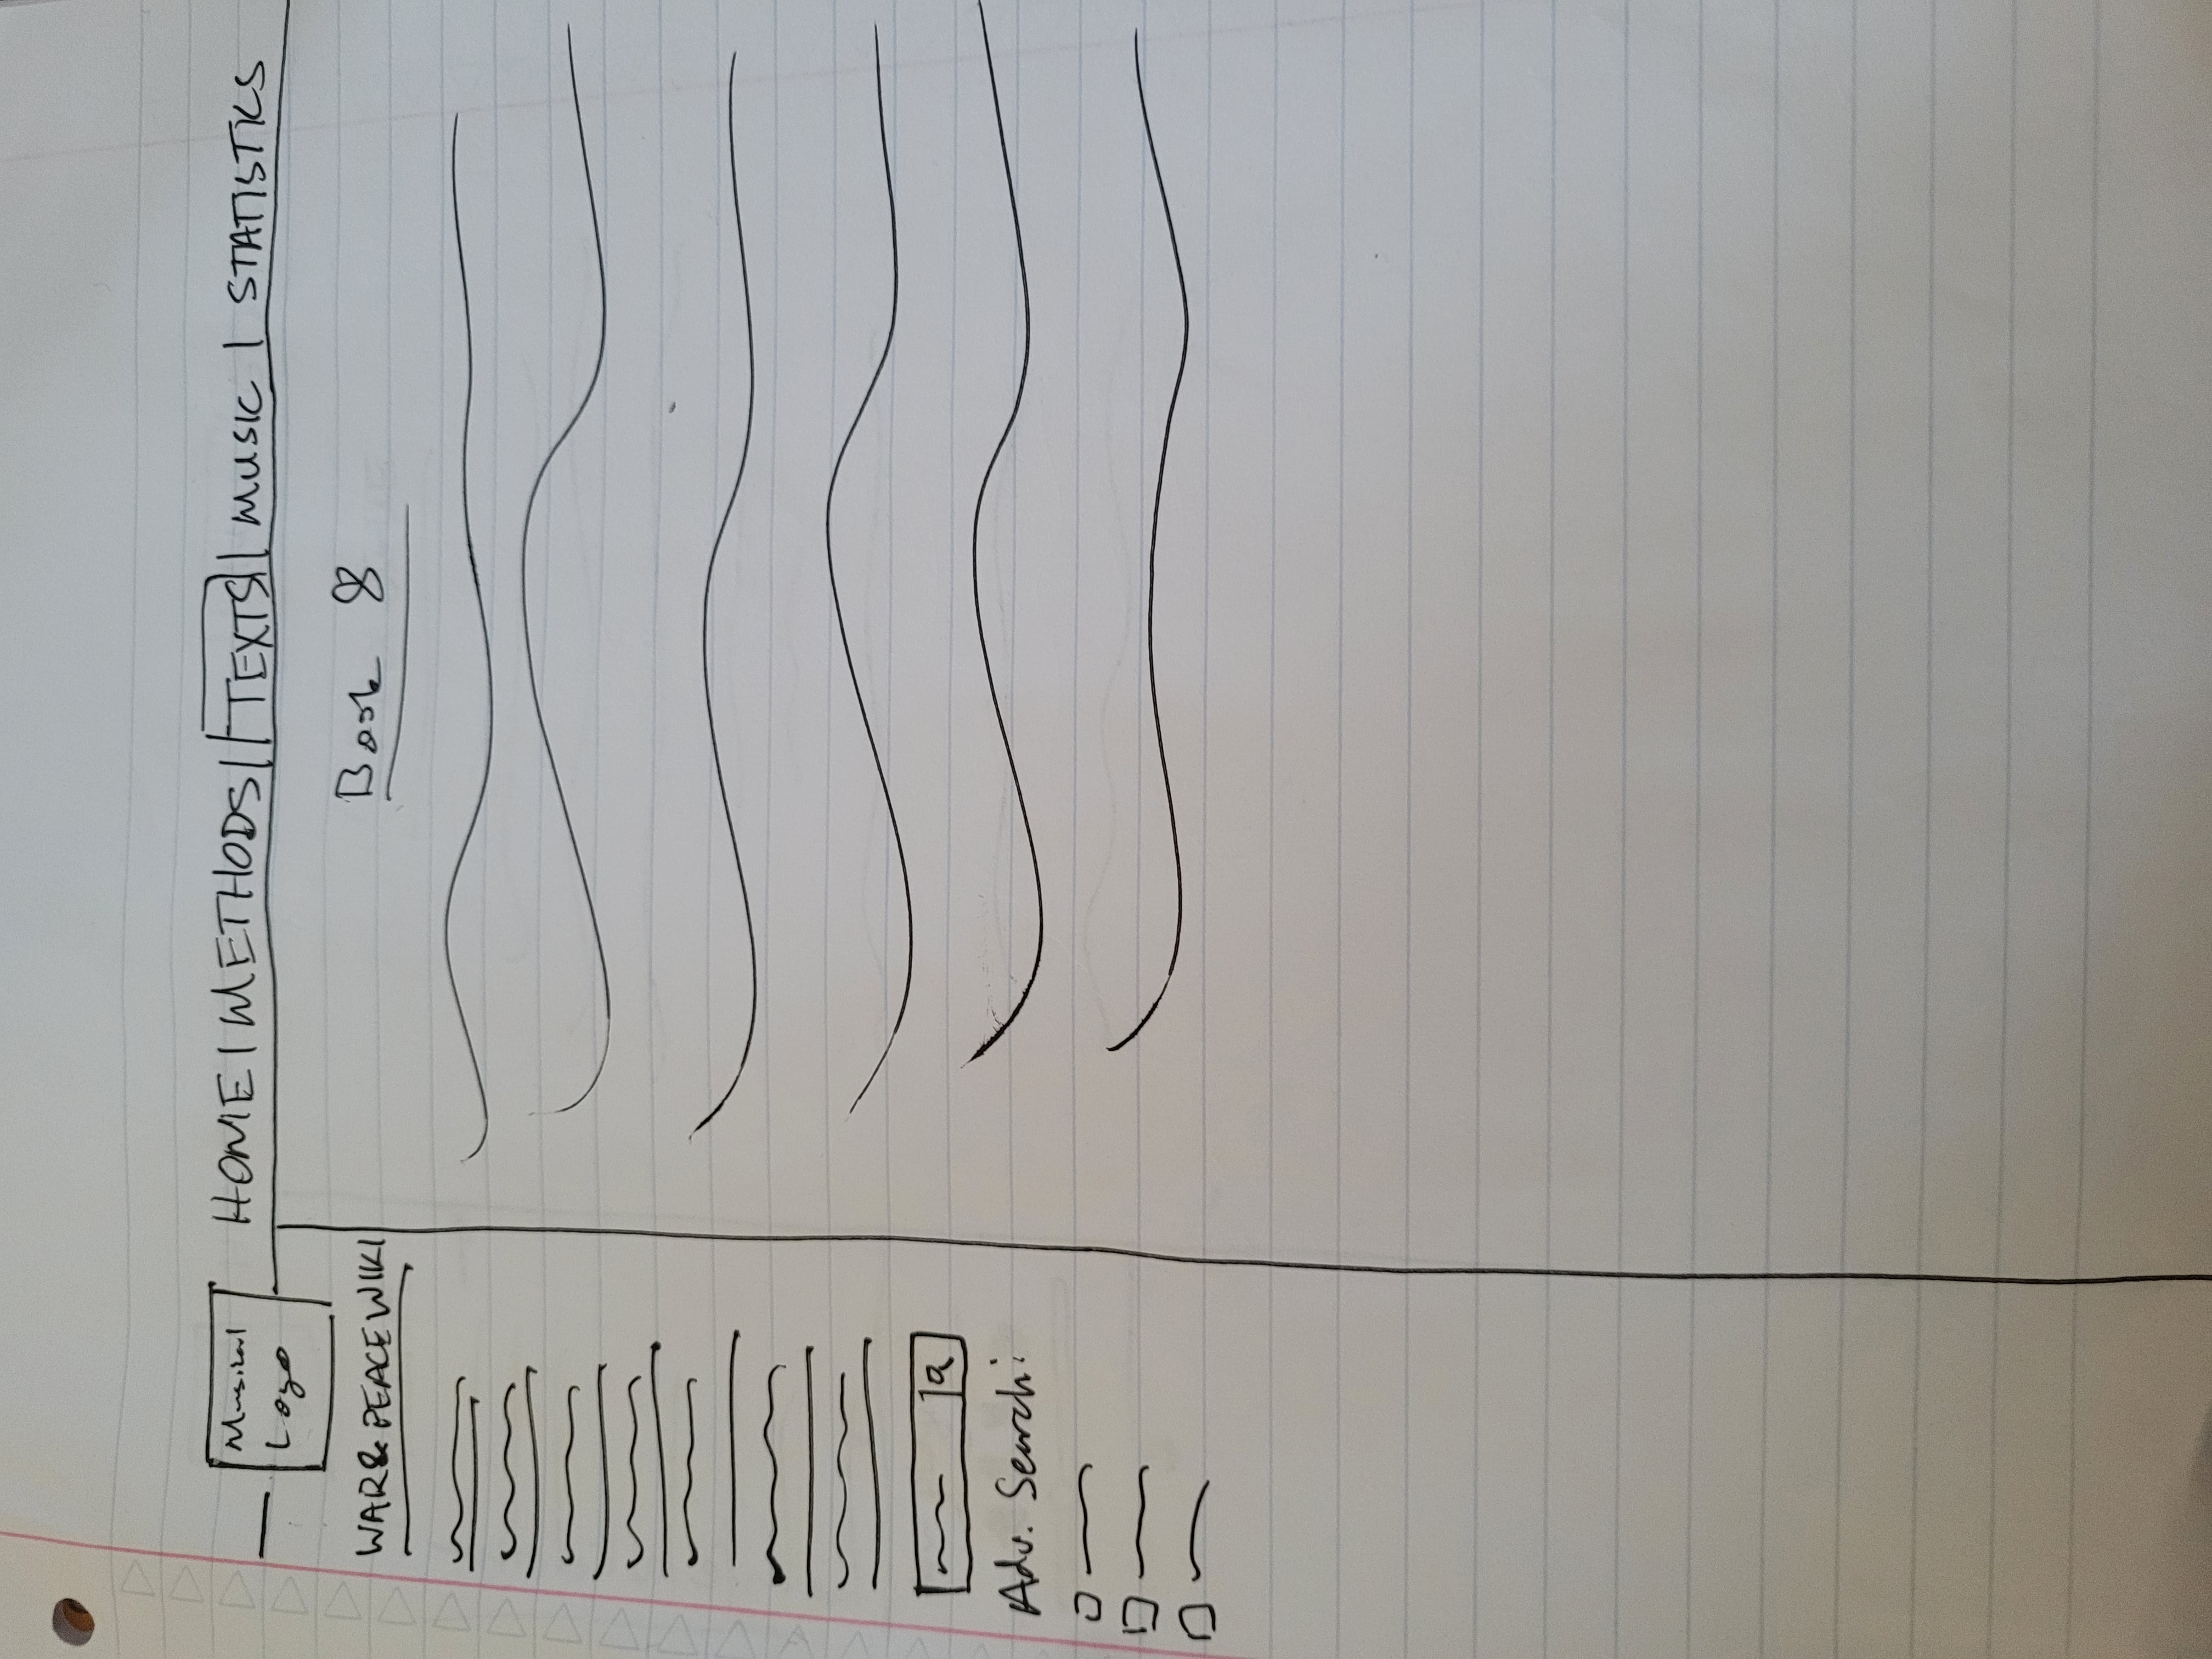 Musical
Logo
HOME | METHODS | TEXTS | MUSIC | STATISTICS
WAR & PEACE WIKI
Book 8
Adv. Search: